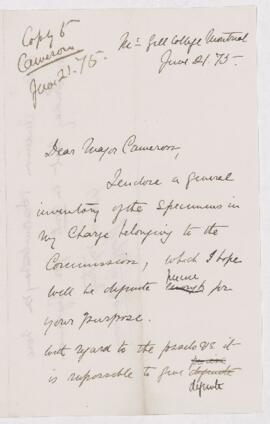 Copy to
Cameron
June 21. 75.
McGill College Montreal
June 21. 75.
Dear Major Cameron,
I enclose a general
inventory of the Specimens in
my Charge belonging to the
Commission, which I hope
will be definite for
your purpose.
With regard to the fossils &c it
is impossible to give definite
definite